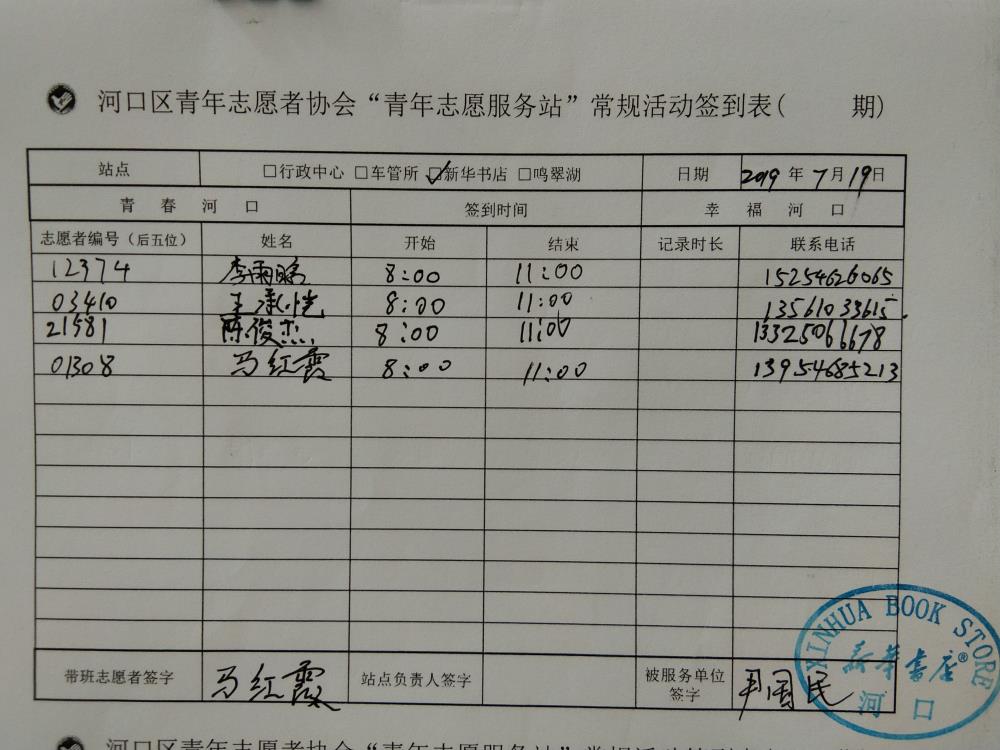 河口区青年志愿者协会“青年志愿服务站”常规活动签到表( 期)
站点 □行政中心 □车管所 ☑新华书店 □鸣翠湖 日期 2019 年 7 月 19 日
青 春 河 口 签到时间 幸 福 河 口
志愿者编号（后五位） 姓名 开始 结束 记录时长 联系电话
12374 李雨鹏 8:00 11:00 15254626065
03410 王承恺 8:00 11:00 13561033615
21581 陈俊杰 8:00 11:00 13325066678
01308 马红霞 8:00 11:00 13954685213
带班志愿者签字 马红霞 站点负责人签字 被服务单位签字 尹国民
XINHUA BOOK STORE
新华书店®
河口
河口区青年志愿者协会“青年志愿服务站”常规活动签到表